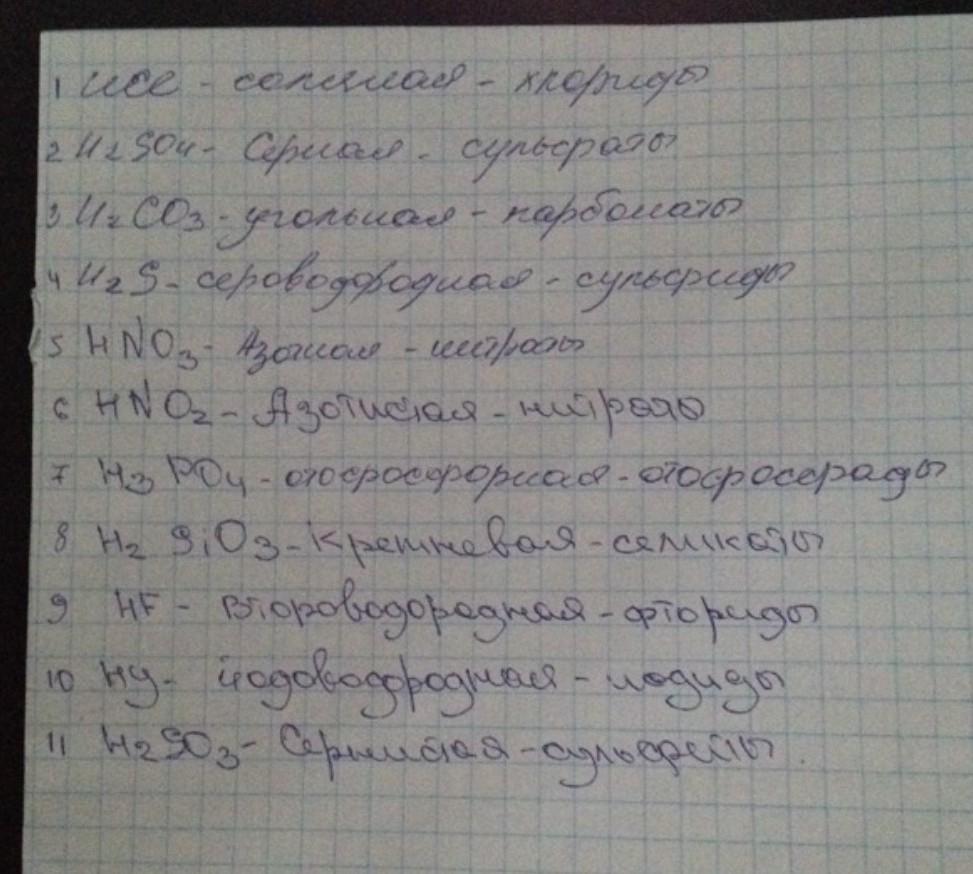 1 HCl - соляная - хлориды
2 H2SO4 - Серная - сульфаты
3 H2CO3 - угольная - карбонаты
4 H2S - сероводородная - сульфиды
5 HNO3 - Азотная - нитраты
6 HNO2 - Азотистая - нитраты
7 H3PO4 - отосфосфорная - отосфосфады
8 H2SiO3 - Кремневая - селикаты
9 HF - Второводородная - фториды
10 HJ - йодоводородная - иодиды
11 H2SO3 - Сернистая - сульфейты.